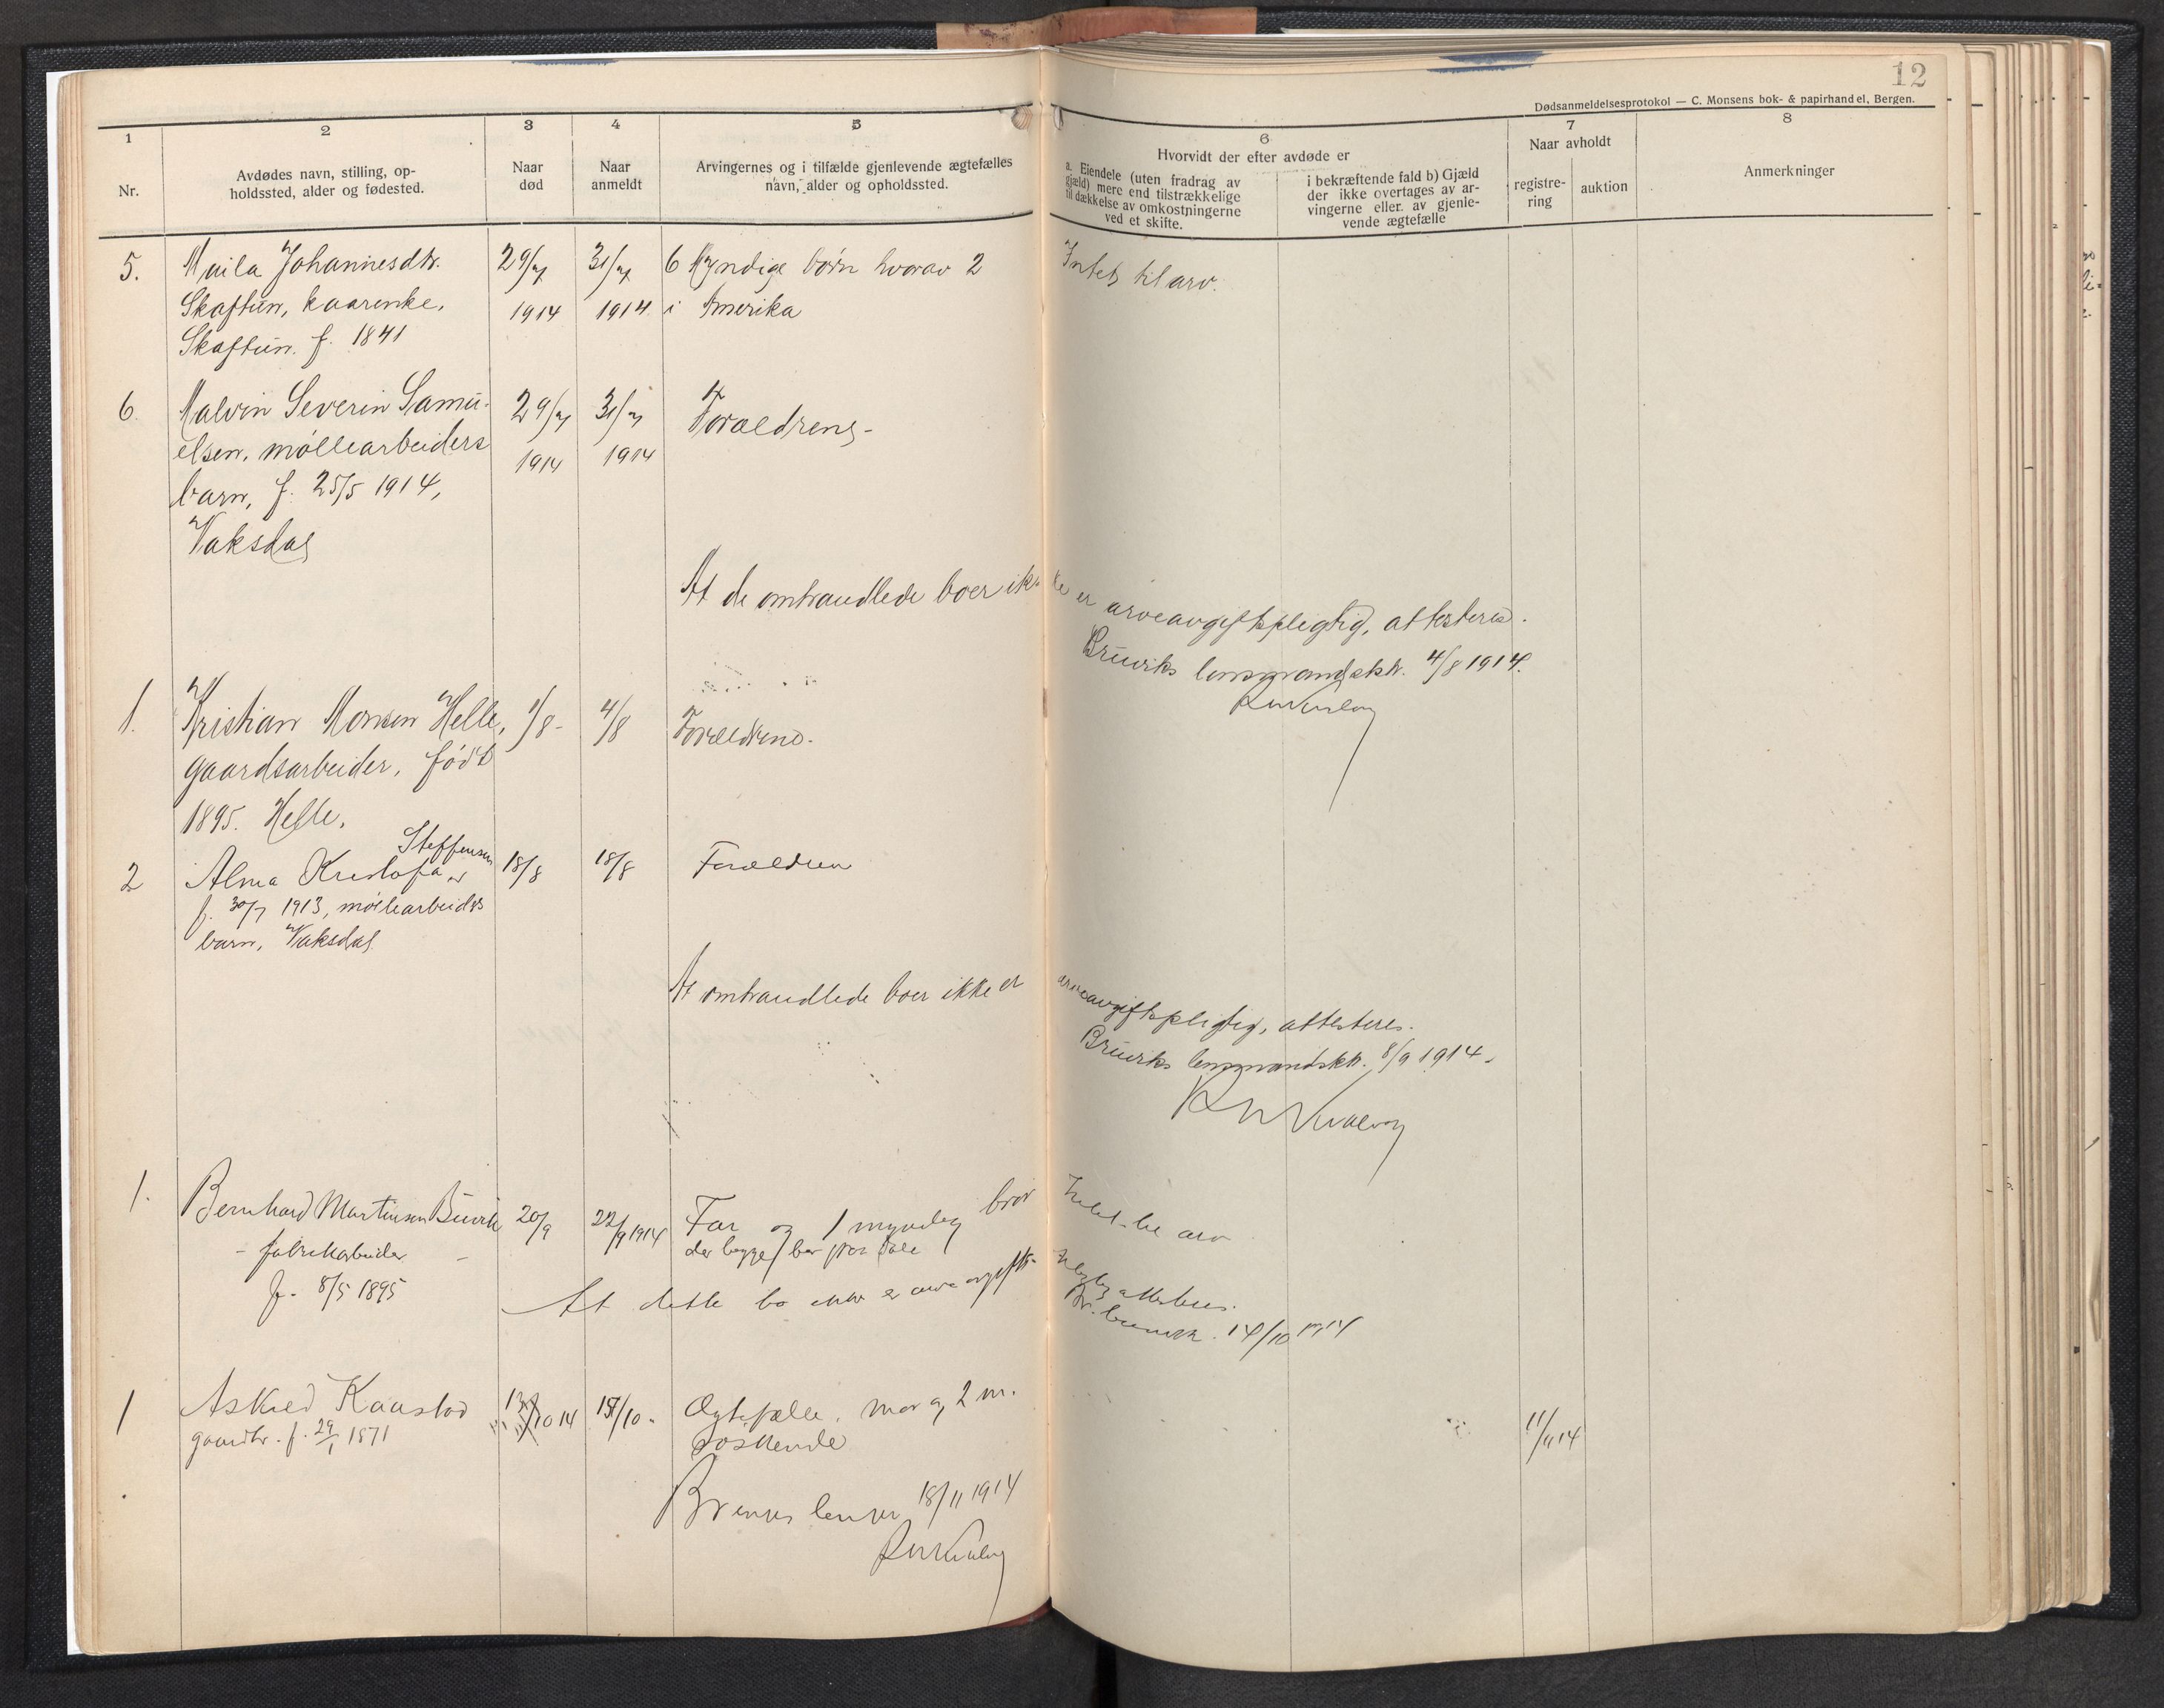 12
Dødsanmeldelsesprotokol — C. Monsens bok- & papirhandel, Bergen.
1
2
3
4
5
6
7
8
Nr.
Avdødes navn, stilling, op-
holdssted, alder og fødested.
Naar
død
Naar
anmeldt
Arvingernes og i tilfælde gjenlevende ægtefælles
navn, alder og opholdssted.
Hvorvidt der efter avdøde er
a. Eiendele (uten fradrag av
gjæld) mere end tilstrækkelige
til dækkelse av omkostningerne
ved et skifte.
i bekræftende fald b) Gjæld
der ikke overtages av ar-
vingerne eller av gjenle-
vende ægtefælle
Naar avholdt
registre-
ring
auktion
Anmerkninger
5. Maila Johannesdtr. 29/7 31/7 6 Myndige børn hvorav 2 Intet til arv.
Skaftun, kaarenke, 1914 1914 i Amerika
Skaftun. f. 1841
6. Malvin Severin Samu- 29/7 31/7 Forældrene
elsen, møllearbeiders 1914 1914
barn, f. 25/5 1914,
Vaksdal
At de omhandlede boer ikke er arveavgiftspligtig, attesteres.
Bruviks lensmandsktr. 4/8 1914.
1. Kristian Monsen Helle, 1/8 4/8 Forældrene.
gaardsarbeider, født
1895. Helle.
Steffensen
2 Alma Kristofa 18/8 18/8 Forældren
f. 30/7 1913, møllearbeiders
barn, Vaksdal
At omhandlede boer ikke er arveavgiftspligtig, attesteres.
Bruviks lensmandsktr. 8/9 1914.
1. Bernhard Martinsen 20/9 22/9 1914 Far og 1 myndig bror Intet til arv
- fabrikarbeider - der begge bor paa Dale
f. 8/5 1895
At dette bo ikke er arveavgifts-
pligtig attesteres.
14/10 1914
1 Askild Kaastad 13/10 14 15/10 Ægtefælle, mor og 2 m. 11/11 14
gaardbr. f. 29/1 1871 søskende
18/11 1914